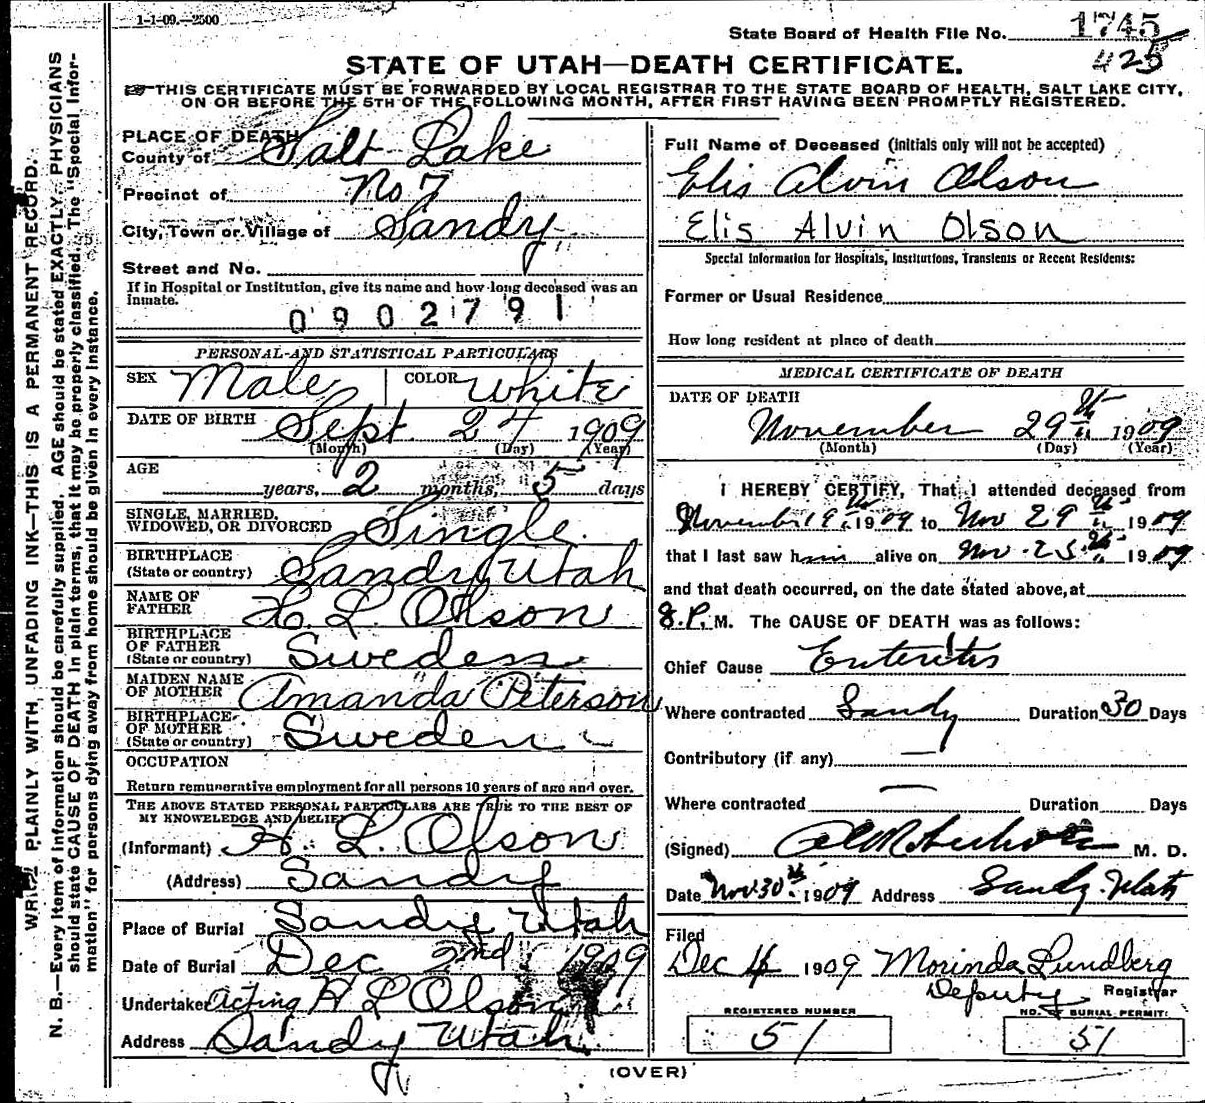 1-1-09.—2500
State Board of Health File No. 1745
425
STATE OF UTAH—DEATH CERTIFICATE.
THIS CERTIFICATE MUST BE FORWARDED BY LOCAL REGISTRAR TO THE STATE BOARD OF HEALTH, SALT LAKE CITY,
ON OR BEFORE THE 5TH OF THE FOLLOWING MONTH, AFTER FIRST HAVING BEEN PROMPTLY REGISTERED.
WRITE PLAINLY WITH UNFADING INK—THIS IS A PERMANENT RECORD.
N. B.—Every item of information should be carefully supplied. AGE should be stated EXACTLY. PHYSICIANS
should state CAUSE OF DEATH in plain terms, that it may be properly classified. The "Special Infor-
mation" for persons dying away from home should be given in every instance.
PLACE OF DEATH
County of Salt Lake
Precinct of No 7
City, Town or Village of Sandy
Street and No.
If in Hospital or Institution, give its name and how long deceased was an
inmate.
0902791
PERSONAL AND STATISTICAL PARTICULARS
SEX Male COLOR White
DATE OF BIRTH Sept 24 1909
(Month) (Day) (Year)
AGE
years, 2 months, 5 days
SINGLE, MARRIED,
WIDOWED, OR DIVORCED Single
BIRTHPLACE
(State or country) Sandy Utah
NAME OF
FATHER H. L. Olson
BIRTHPLACE
OF FATHER
(State or country) Sweden
MAIDEN NAME
OF MOTHER Amanda Peterson
BIRTHPLACE
OF MOTHER
(State or country) Sweden
OCCUPATION
Return remunerative employment for all persons 10 years of age and over.
THE ABOVE STATED PERSONAL PARTICULARS ARE TRUE TO THE BEST OF
MY KNOWLEDGE AND BELIEF
(Informant) H. L. Olson
(Address) Sandy
Place of Burial Sandy Utah
Date of Burial Dec 2nd 1909
Undertaker Acting H L Olson
Address Sandy Utah
Full Name of Deceased (initials only will not be accepted)
Elis Alvin Olson
Elis Alvin Olson
Special Information for Hospitals, Institutions, Transients or Recent Residents:
Former or Usual Residence
How long resident at place of death
MEDICAL CERTIFICATE OF DEATH
DATE OF DEATH
November 29th 1909
(Month) (Day) (Year)
I HEREBY CERTIFY, That I attended deceased from
November 19th 1909 to Nov 29th 1909
that I last saw him alive on Nov. 25th 1909
and that death occurred, on the date stated above, at
8. P. M. The CAUSE OF DEATH was as follows:
Chief Cause Enteritis
Where contracted Sandy Duration 30 Days
Contributory (if any) —
Where contracted — Duration Days
(Signed) M. D.
Date Nov 30th 1909 Address Sandy Utah
Filed
Dec 4 1909 Morinda Lundberg
Deputy Registrar
REGISTERED NUMBER
51
NO. OF BURIAL PERMIT:
51
(OVER)